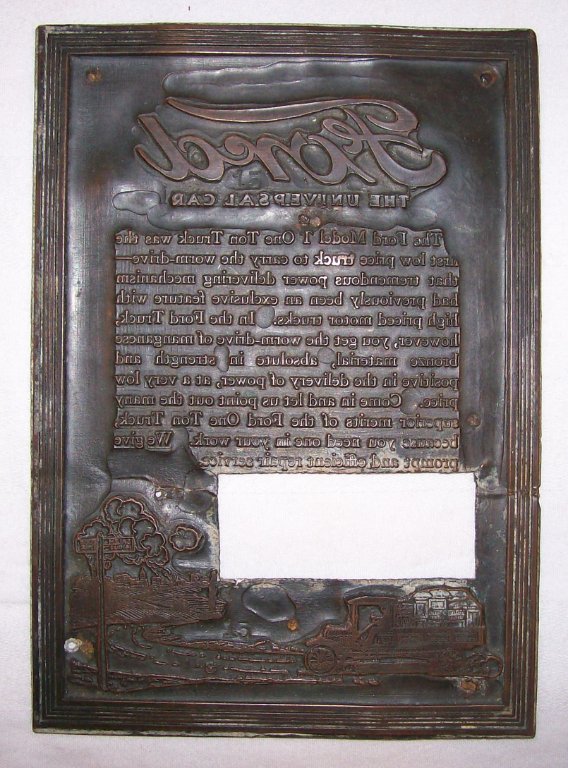 Ford
THE UNIVERSAL CAR
The Ford Model T One Ton Truck was the
first low price truck to carry the worm-drive—
that tremendous power delivering mechanism
had previously been an exclusive feature with
high priced motor trucks. In the Ford Truck,
however, you get the worm-drive of manganese
bronze material, absolute in strength and
positive in the delivery of power, at a very low
price. Come in and let us point out the many
superior merits of the Ford One Ton Truck
because you need one in your work. We give
prompt and efficient repair service.